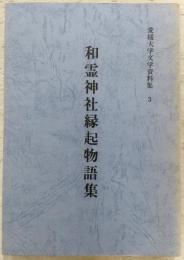 愛媛大学文学資料集 3
和霊神社縁起物語集